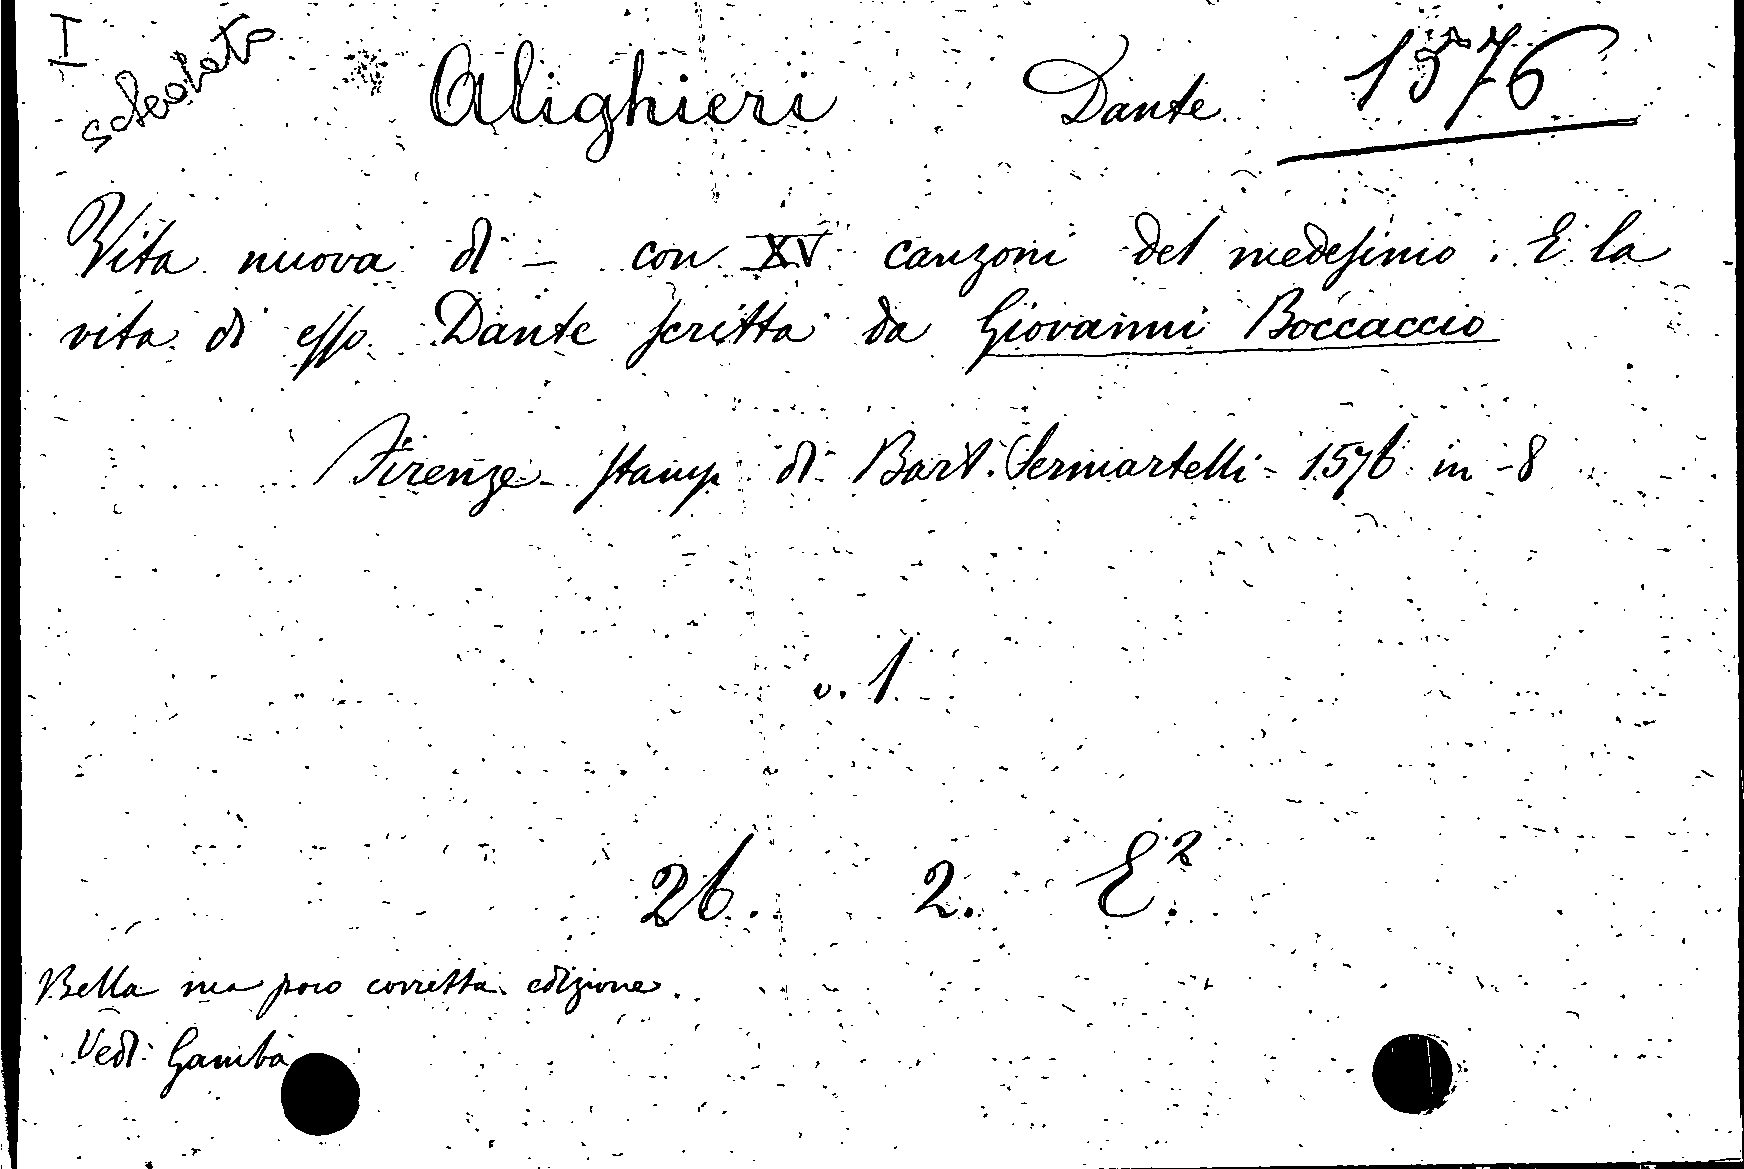 I
schedato
Alighieri Dante 1576
Vita nuova di - con XV canzoni del medesimo. E la
vita di esso Dante scritta da Giovanni Boccaccio
Firenze - stamp di Bart. Sermartelli - 1576 in - 8
v. 1
26. 2. E².
Bella ma poco corretta edizione.
Vedi Gamba